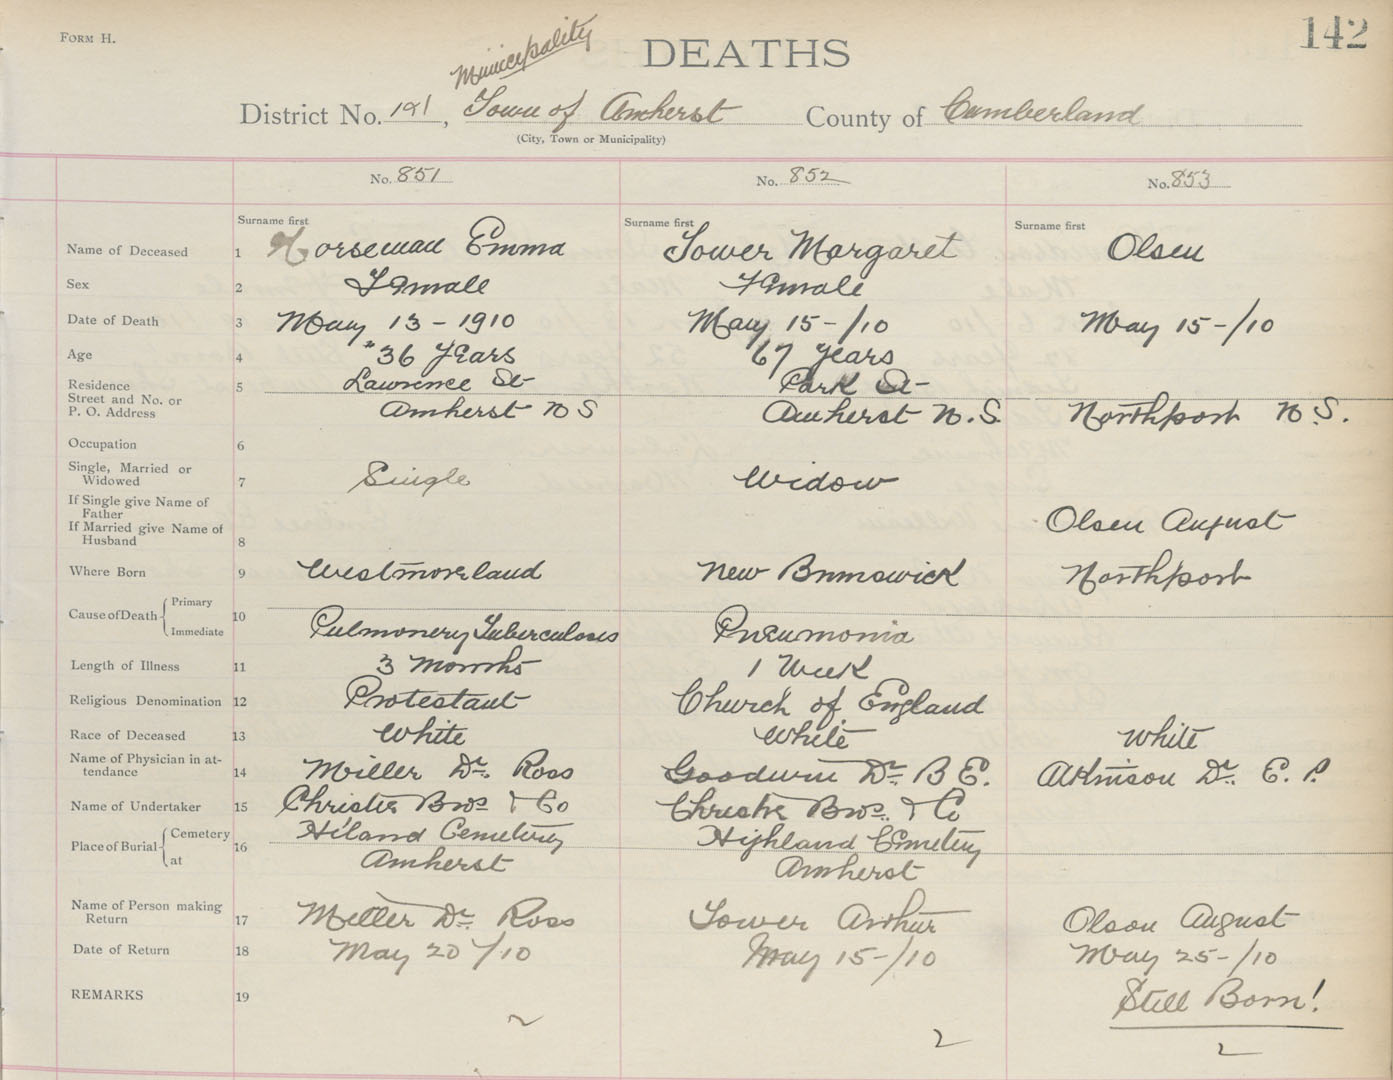 FORM H.
Municipality
DEATHS
142
District No. 121, Town of Amherst County of Cumberland
(City, Town or Municipality)
No. 851 No. 852 No. 853
Surname first Surname first Surname first
Name of Deceased 1 Horseman Emma Tower Margaret Olsen
Sex 2 Female Female
Date of Death 3 May 13 - 1910 May 15 -/10 May 15 -/10
Age 4 "36 Years 67 Years
Residence 5 Lawrence St Park St
Street and No. or
P. O. Address Amherst N S Amherst N. S. Northport N. S.
Occupation 6
Single, Married or
Widowed 7 Single Widow
If Single give Name of
Father
If Married give Name of Olsen August
Husband 8
Where Born 9 Westmoreland New Brunswick Northport
Cause of Death Primary
10
Immediate Pulmonery Tuberculosis Pneumonia
Length of Illness 11 3 Months 1 Week
Religious Denomination 12 Protestant Church of England
Race of Deceased 13 White White White
Name of Physician in at-
tendance 14 Miller Dr. Ross Goodwin Dr. B E. Atkinson Dr. E.
Name of Undertaker 15 Christie Bros & Co Christie Bros. & Co
Place of Burial Cemetery 16 Hiland Cemetery Highland Cemetery
at Amherst Amherst
Name of Person making
Return 17 Miller Dr. Ross Tower Arthur Olson August
Date of Return 18 May 20 /10 May 15 -/10 May 25 -/10
REMARKS 19 Still Born!
2 2